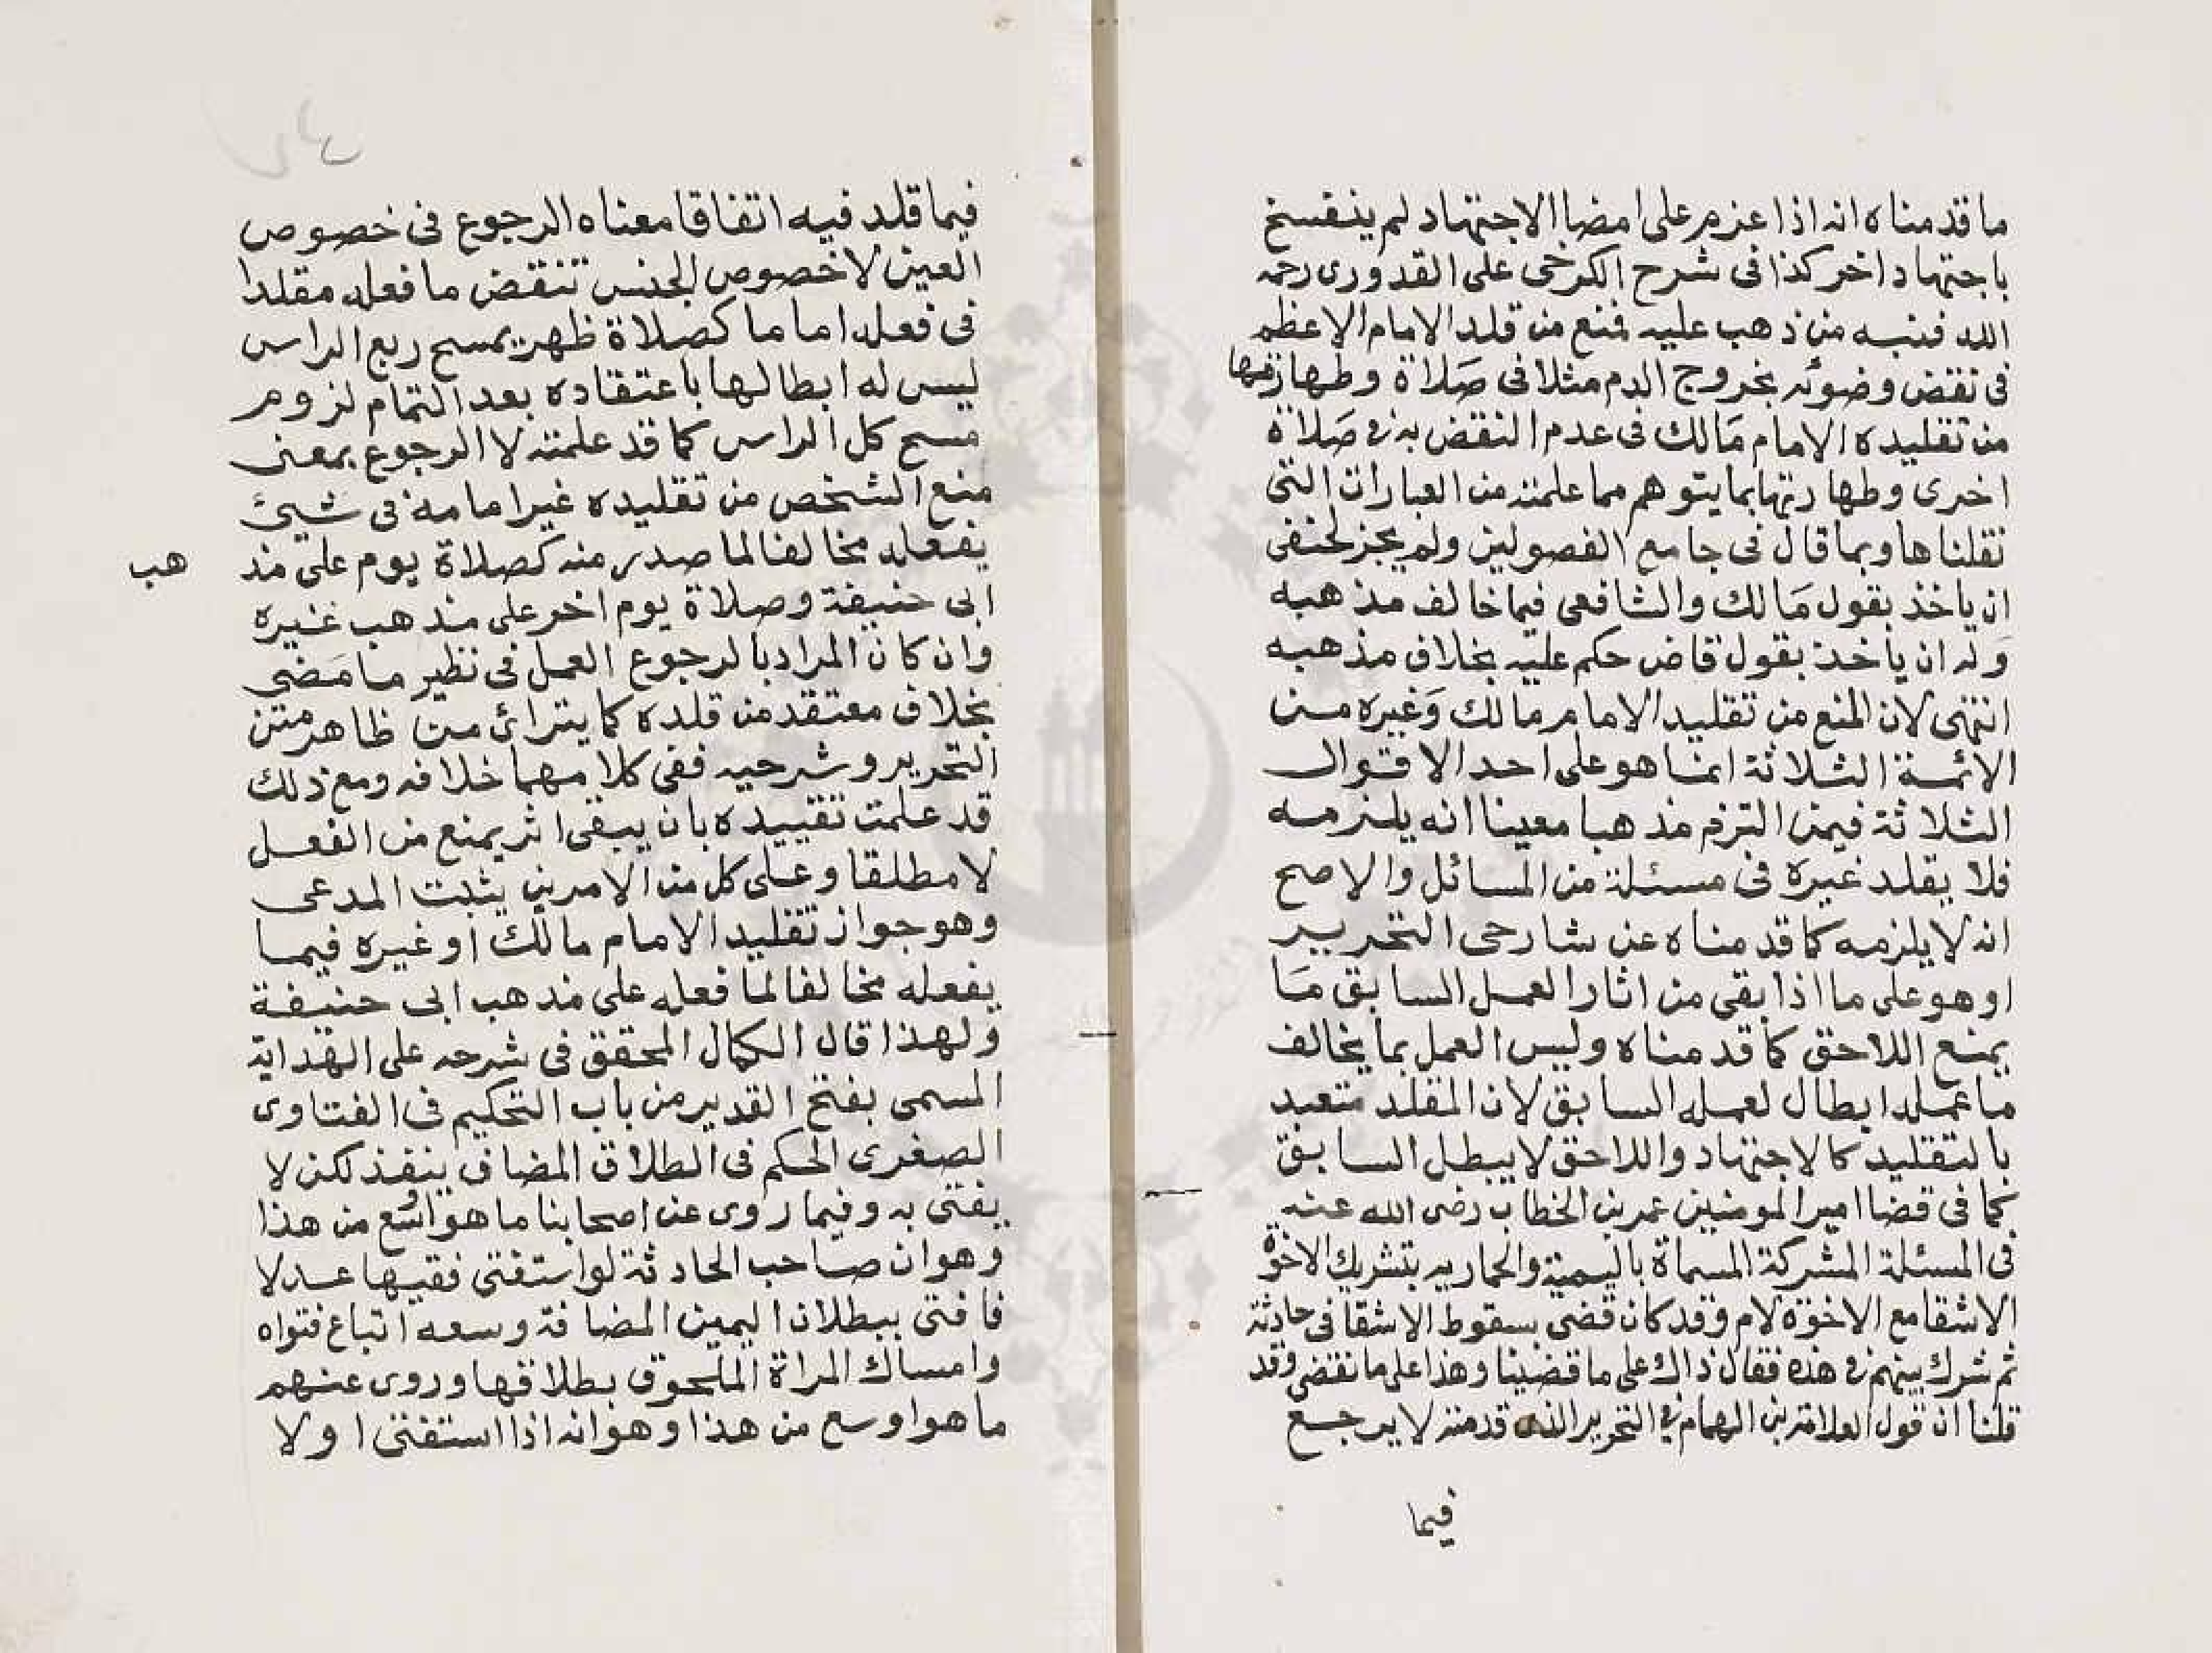 ما قدمناه انه اذا عزم على امضا الاجتهاد لم ينفسخ
باجتهاد اخر كذا فى شرح الكرخى على القدورى رحمه
الله فنبه من ذهب عليه فمنع من قلد الامام الاعظم
فى نقض وضوئه بخروج الدم مثلا فى صلاة وطهارتها
من تقليده الامام مالك فى عدم النقض به فى صلاة
اخرى وطهارتها بما يتوهم مما علمته من العبارات التى
نقلناها وبما قال فى جامع الفصولين ولم يجز لحنفى
ان ياخذ بقول مالك والشافعى فيما خالف مذهبه
وله ان ياخذ بقول قاض حكم عليه بخلاف مذهبه
انتهى لان المنع من تقليد الامام مالك وغيره من
الائمة الثلاثة انما هو على احد الاقوال
الثلاثة فيمن التزم مذهبا معينا انه يلزمه
فلا يقلد غيره فى مسئلة من المسائل والاصح
انه لا يلزمه كما قدمناه عن شارحى التحرير
او هو على ما اذا بقى من اثار العمل السابق ما
يمنع اللاحق كما قدمناه وليس العمل بما يخالف
ما عمله ابطال لعمله السابق لان المقلد متعبد
بالتقليد كالاجتهاد واللاحق لا يبطل السابق
كما فى قضا امير المومنين عمر بن الخطاب رضى الله عنه
فى المسئلة المشركة المسماة باليمية والحماريه بتشريك الاخوة
الاشقا مع الاخوة لام وقد كان قضى بسقوط الاشقا فى حادثة
ثم شرك بينهم فى هذه فقال ذاك على ما قضينا وهذا على ما نقضى وقد
قلنا ان قول العلامة بن الهمام فى التحرير الذى قدمته لا يرجع
فيما
فيما قلد فيه اتفاقا معناه الرجوع فى خصوص
العين لا خصوص الجنس تنقض ما فعله مقلدا
فى فعله اماما كصلاة ظهر بمسح ربع الراس
ليس له ابطالها باعتقاده بعد التمام لزوم
مسح كل الراس كما قد علمته لا الرجوع بمعنى
منع الشخص من تقليده غير امامه فى شيئ
يفعله مخالفا لما صدر منه كصلاة يوم على مذ هب
ابى حنيفة وصلاة يوم اخر على مذهب غيره
وان كان المراد بالرجوع العمل فى نظير ما مضى
بخلاف معتقد من قلده كما يترائ من ظاهر متن
التحرير وشرحيه ففى كلامهما خلافه ومع ذلك
قد علمت تقييده بان يبقى اثر يمنع من الفعل
لا مطلقا وعلى كل من الامرين يثبت المدعى
وهو جواز تقليد الامام مالك او غيره فيما
يفعله مخالفا لما فعله على مذهب ابى حنيفة
ولهذا قال الكمال المحقق فى شرحه على الهداية
المسمى بفتح القدير من باب التحكيم فى الفتاوى
الصغرى الحكم فى الطلاق المضاف ينفذ لكن لا
يفتى به وفيما روى عن اصحابنا ما هو اوسع من هذا
وهو ان صاحب الحادثة لو استفتى فقيها عدلا
فافتى ببطلان اليمين المضافة وسعه اتباع فتواه
وامساك المراة الملحوق بطلاقها وروى عنهم
ما هو اوسع من هذا وهو انه اذا استفتى اولا